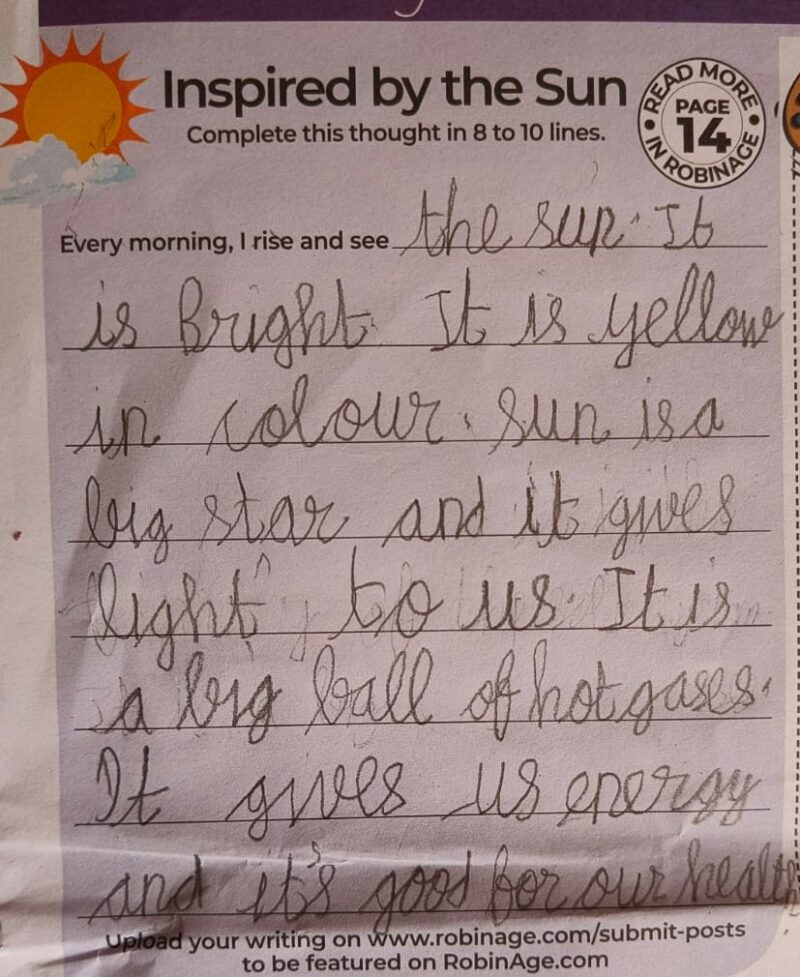 Inspired by the Sun
Complete this thought in 8 to 10 lines.
READ MORE
PAGE
14
IN ROBINAGE
Every morning, I rise and see the sun. It
is Bright. It is yellow
in colour. Sun is a
big star and it gives
light to us. It is
a big ball of hot gases.
It gives us energy
and it's good for our health
Upload your writing on www.robinage.com/submit-posts
to be featured on RobinAge.com